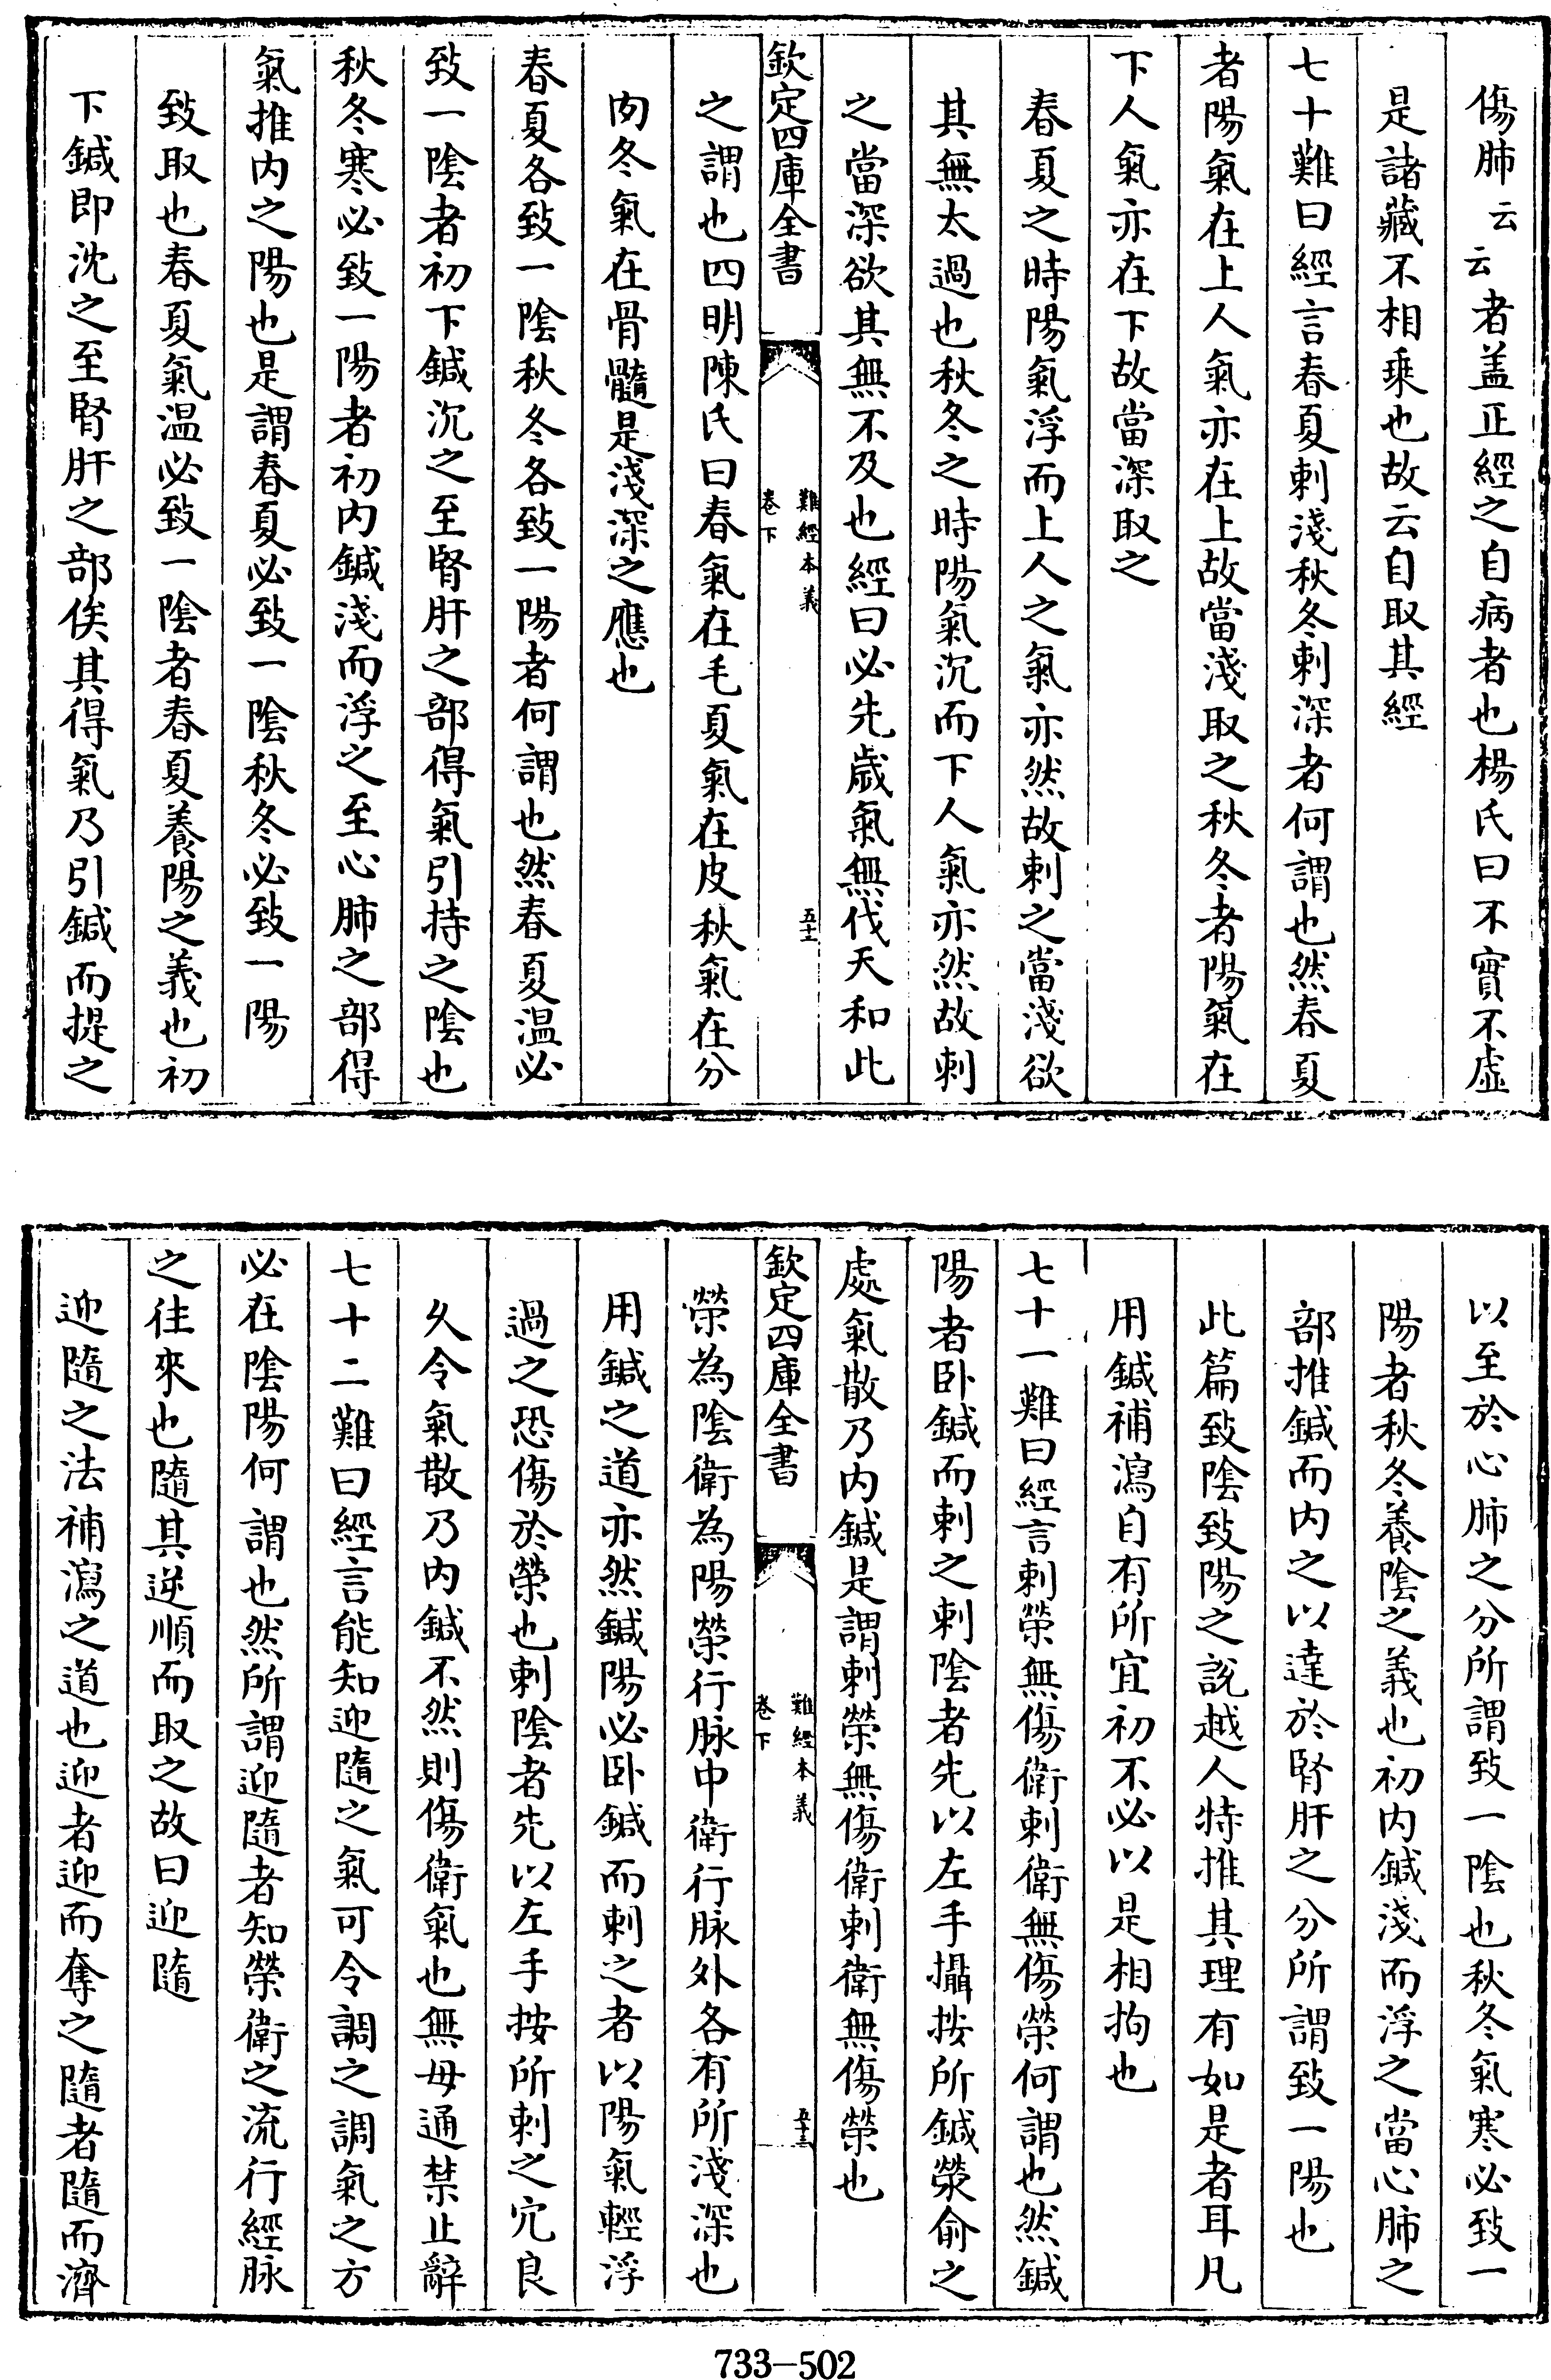 傷肺云云者盖正經之自病者也楊氏曰不實不虛
是諸藏不相乗也故云自取其經
七十難曰經言春夏刺淺秋冬刺深者何謂也然春夏
者陽氣在上人氣亦在上故當淺取之秋冬者陽氣在
下人氣亦在下故當深取之
春夏之時陽氣浮而上人之氣亦然故刺之當淺欲
其無太過也秋冬之時陽氣沉而下人氣亦然故刺
之當深欲其無不及也經曰必先歲氣無伐天和此
欽定四庫全書
難經本義
卷下
五十二
之謂也四明陳氏曰春氣在毛夏氣在皮秋氣在分
肉冬氣在骨髓是淺深之應也
春夏各致一陰秋冬各致一陽者何謂也然春夏温必
致一陰者初下鍼沉之至腎肝之部得氣引持之陰也
秋冬寒必致一陽者初内鍼淺而浮之至心肺之部得
氣推内之陽也是謂春夏必致一陰秋冬必致一陽
致取也春夏氣温必致一陰者春夏養陽之義也初
下鍼即沈之至腎肝之部俟其得氣乃引鍼而提之
以至於心肺之分所謂致一陰也秋冬氣寒必致一
陽者秋冬養陰之義也初内鍼淺而浮之當心肺之
部推鍼而内之以達於腎肝之分所謂致一陽也
此篇致陰致陽之說越人特推其理有如是者耳凡
用鍼補瀉自有所宜初不必以是相拘也
七十一難曰經言刺榮無傷衛刺衛無傷榮何謂也然鍼
陽者卧鍼而刺之刺陰者先以左手攝按所鍼滎俞之
處氣散乃内鍼是謂刺榮無傷衛刺衛無傷榮也
欽定四庫全書
難經本義
卷下
五十三
榮為陰衛為陽榮行脉中衛行脉外各有所淺深也
用鍼之道亦然鍼陽必卧鍼而刺之者以陽氣輕浮
過之恐傷於榮也刺陰者先以左手按所刺之穴良
久令氣散乃内鍼不然則傷衛氣也無毋通禁止辭
七十二難曰經言能知迎隨之氣可令調之調氣之方
必在陰陽何謂也然所謂迎隨者知榮衛之流行經脉
之往來也隨其逆順而取之故曰迎隨
迎隨之法補瀉之道也迎者迎而奪之隨者隨而濟
733-502